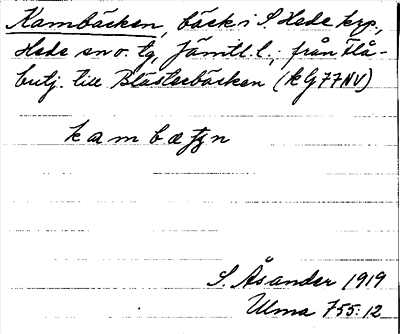 Kambäcken, bäck i S. Hede kzp,
Hede sn o. tg, Jämtl. l.; från Flå-
butj. till Blästerbäcken (kG77NV)
k a m b æ
S. Åsander 1919
Ulma 755:12